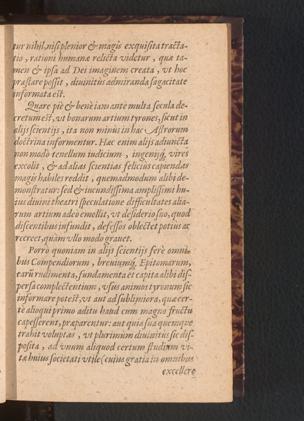 tur nihil, nisi plenior & magis exquisita tracta-
tio, rationi humanæ relicta videtur, qua ta-
men & ipsa ad Dei imaginem creata, vt hoc
præstare possit, diuinitus admiranda sagacitate
informata est.
Quare piè & benè iam antè multa secula de-
cretum est, vt bonarum artium tyrones, sicut in
alijs scientijs, ita non minus in hac Astrorum
doctrina informentur. Hæc enim alijs adiuncta
non modò tenellum iudicium, ingenijq́; vires
excolit, & ad alias scientias felicius capiendas
magis habiles reddit, quemadmodum alibi de-
monstratur: sed & iucundissima amplissimi hu-
ius diuini theatri speculatione difficultates alia-
rum artium adeo emollit, vt desiderio suo, quod
discentibus infundit, defessos oblectet potius ac
recreet, quàm vllo modo grauet.
Porrò quoniam in alijs scientijs ferè omni-
bus Compendiorum, breuiumq́; Epitomarum,
earū rudimenta, fundamenta et capita alibi dis-
persa complectentium, vsus animos tyronum sic
informare potest, vt aut ad sublimiora, quæ cer-
tè alioqui primo aditu haud cum magno fructu
capesserent, præparentur: aut quia sua quemque
trahit voluptas, vt plurimum diuinitus sic dis-
posita, ad vnum aliquod certum studium vi-
tæ huius societati vtile (cuius gratia in omnibus
excellere